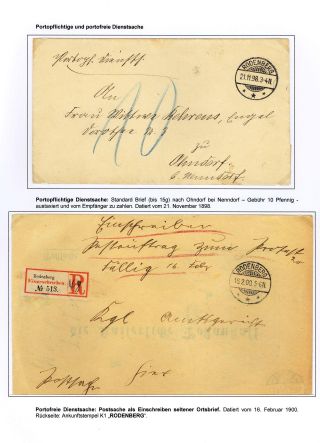 Portopflichtige und portofreie Dienstsache
RODENBERG
21.11.98.3-4N
An
Frau Wittwe Behrens, Engel
zu
Ohndorf
Portopflichtige Dienstsache: Standard Brief (bis 15g) nach Ohndorf bei Nenndorf – Gebühr 10 Pfennig -
austaxiert und vom Empfänger zu zahlen. Datiert vom 21. November 1898.
Einschreiben
Postauftrag zum Protest
Fällig 16 Febr
Rodenberg
Einschreiben.
№ 513.
R
RODENBERG
16.2.00.5-6N
Kgl Amtsgericht
Hier
Portofreie Dienstsache: Postsache als Einschreiben seltener Ortsbrief. Datiert vom 16. Februar 1900.
Rückseite: Ankunftstempel K1 „RODENBERG“.